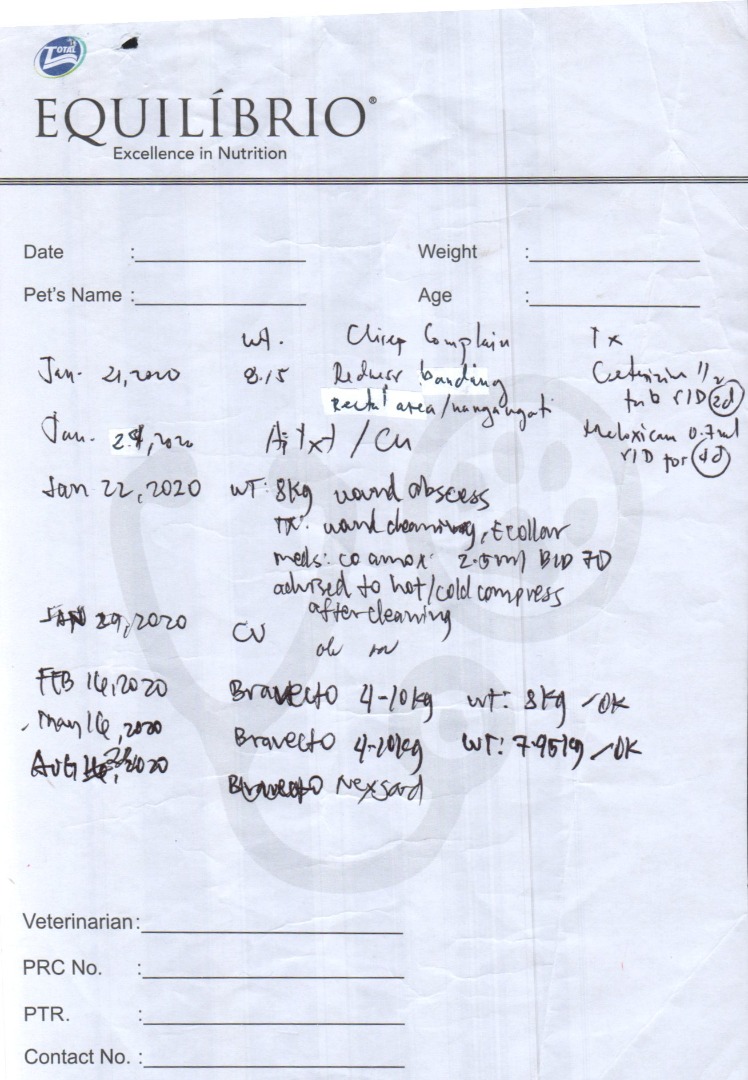 TOTAL
EQUILÍBRIO®
Excellence in Nutrition
Date : Weight :
Pet's Name : Age :
wt. Chiep Complain Tx
Jan. 21, 2020 8.15 banding 1/2
rectal area/nangangati tab SID 2d
Jan. 2020 Meloxicam 0.7ml
SID for 4d
Jan 22, 2020 wt: 8kg wound abscess
TX: wound cleaning, Ecollar
meds: co amox: 2.5ml BID 7D
advised to hot/cold compress
after cleaning
JAN 29, 2020 CU
FEB 16, 2020 Bravecto 4-10kg wt: 8kg /OK
May 16, 2020 Bravecto 4-10kg WT: 7.95kg /OK
AUG 2020 Bravecto Nexgard
Veterinarian :
PRC No. :
PTR. :
Contact No. :